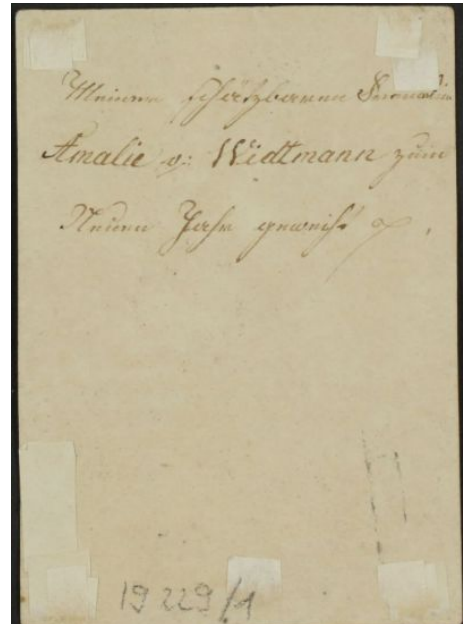 Meiner schätzbaren Freundin
Amalie v: Widtmann zum
Neuen Jahr geweiht
19229/1